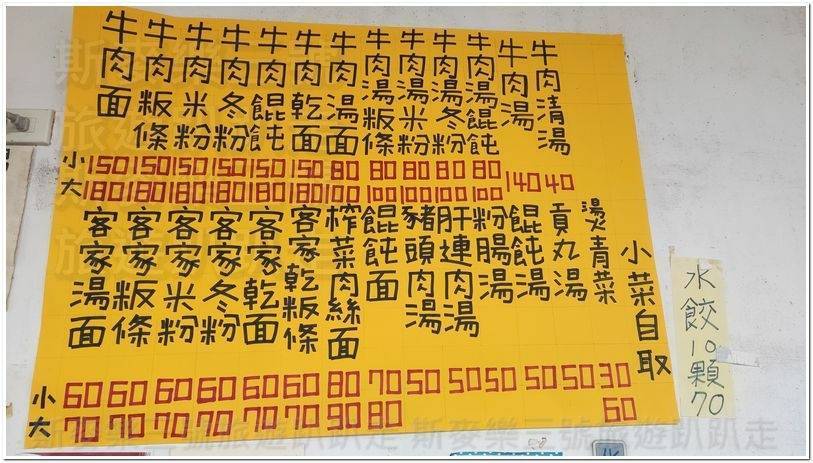 牛肉面
牛肉粄條
牛肉米粉
牛肉冬粉
牛肉餛飩
牛肉乾面
牛肉湯面
牛肉湯粄條
牛肉湯米粉
牛肉湯冬粉
牛肉湯餛飩
牛肉湯
牛肉清湯
小 150 150 150 150 150 150 80 80 80 80 80
大 180 180 180 180 180 180 100 100 100 100 100 140 40
客家湯面
客家粄條
客家米粉
客家冬粉
客家乾面
客家乾粄條
榨菜肉絲面
餛飩面
豬頭肉湯
肝連肉湯
粉腸湯
餛飩湯
貢丸湯
燙青菜
小菜自取
小 60 60 60 60 60 60 80 70 50 50 50 50 50 30
大 70 70 70 70 70 70 90 80 60
水餃10顆70
斯麥樂三號旅遊趴趴走 斯麥樂三號旅遊趴趴走